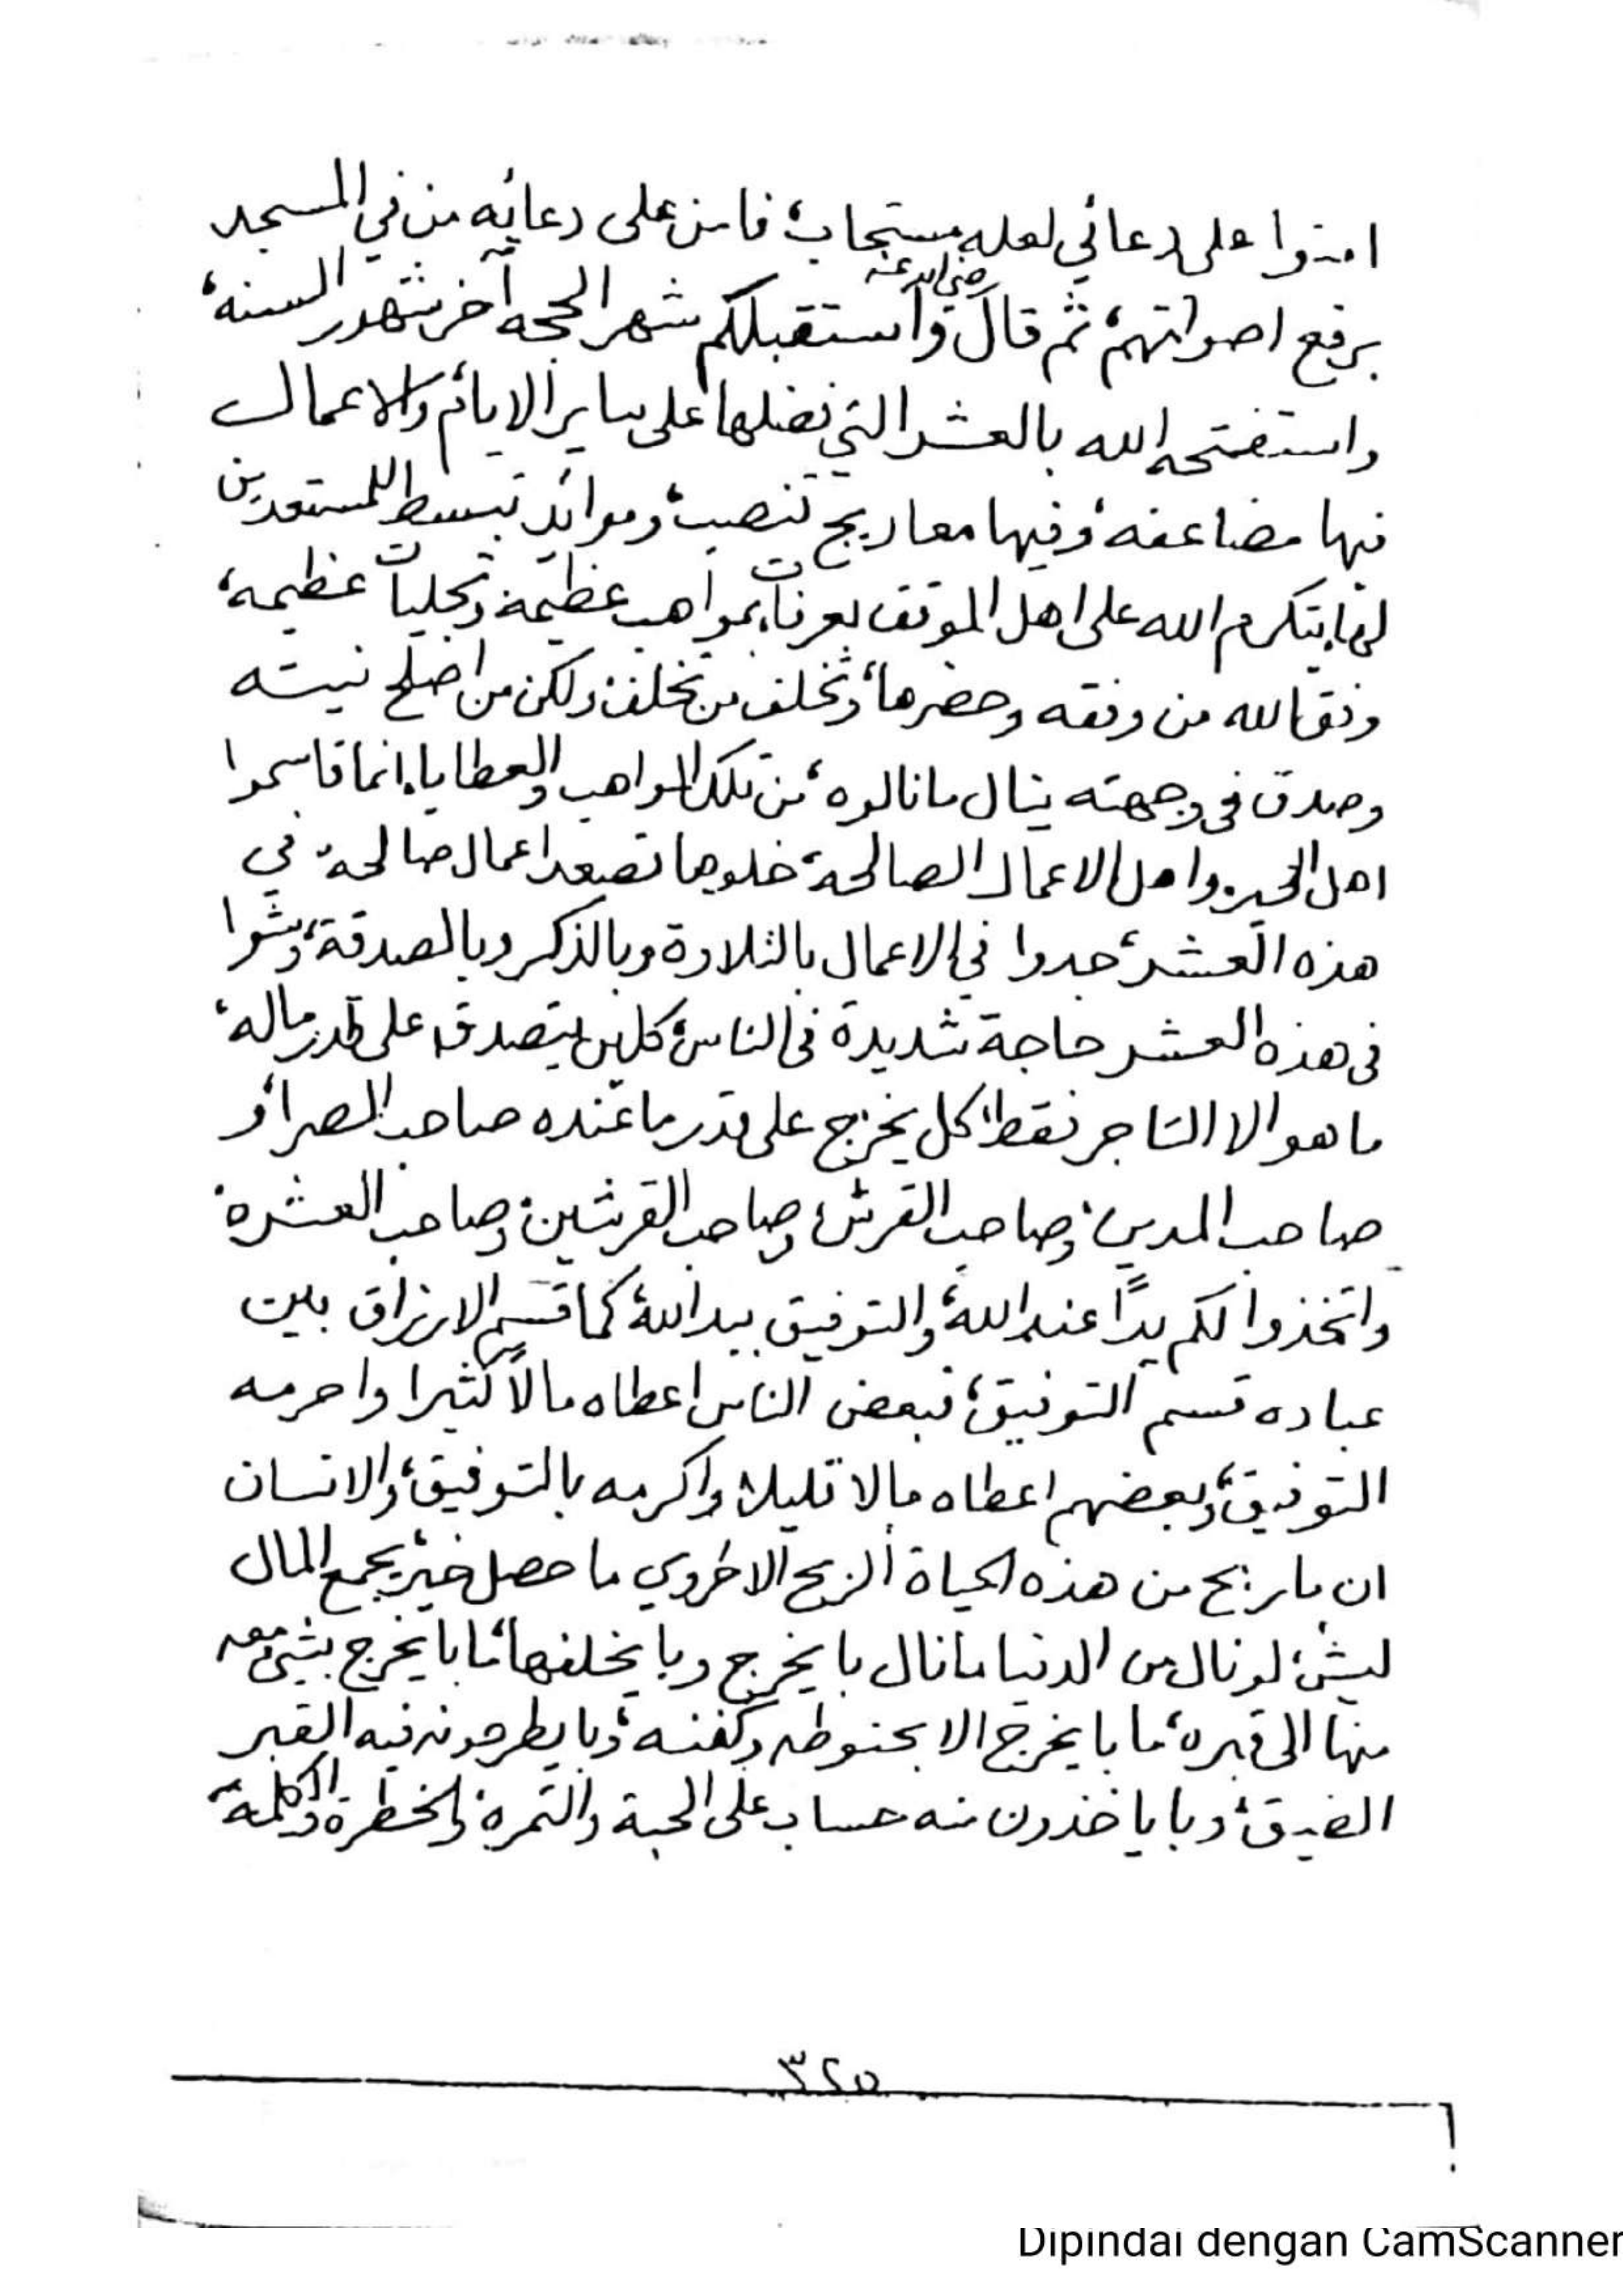 امنوا على دعائي لعله يستجاب، فامن على دعائه من في المسجد
برفع اصواتهم، ثم قال رضي الله عنه واستقبلكم شهر الحجه آخر شهور السنه،
واستفتحه الله بالعشر التي فضلها على ساير الايام والاعمال
فيها مضاعفه، وفيها معاريج تنصب، وموائد تبسط للمستعدين
لها، يتكرم الله على اهل الموقف بعرفات بمواهب عظيمة وتجليات عظيمه،
وفق الله من وفقه وحضرها، وتخلف من تخلف، ولكن من اصلح نيته
وصدق في وجهته ينال ما نالوه، من تلك المواهب والعطايا، انما قاسموا
اهل الخير، واهل الاعمال الصالحة، خلوها تصعد اعمال صالحة، في
هذه العشر، جدوا في الاعمال بالتلاوة وبالذكر وبالصدقة،
في هذه العشر حاجة شديدة في الناس، كلن يتصدق على قدر ماله،
ما هو الا التاجر فقط، كل يخرج على قدر ما عنده صاحب المصرا، و
صاحب المدين، وصاحب القرش، وصاحب القرشين، وصاحب العشره،
واتخذوا لكم يدًا عند الله، والتوفيق بيد الله، كما قسم الارزاق بين
عباده قسم التوفيق، فبعض الناس اعطاه مالاً كثيرا واحرمه
التوفيق، وبعضهم اعطاه مالا قليلا، واكرمه بالتوفيق، والانسان
ان ما ربح من هذه الحياة الربح الاخروي ما حصل خير، يجمع المال
ليش، لو نال من الدنيا ما نال با يخرج وبا يخلفها، ما با يخرج بشئ معه
منها الى قبره، ما با يخرج الا بحنوطه وكفنه، وبا يطرحونه فيه القبر
الضيق، وبا ياخذون منه حساب على الحبة والتمرة، والخطرة والكلمة،
٣٢٥
Dipindai dengan CamScanner